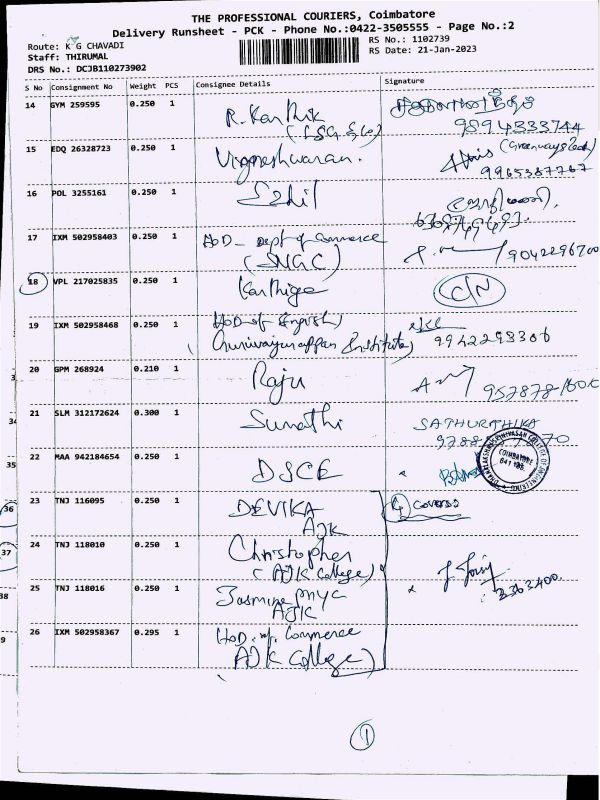 THE PROFESSIONAL COURIERS, Coimbatore
Delivery Runsheet - PCK - Phone No.:0422-3505555 - Page No.:2
Route: K G CHAVADI
RS No.: 1102739
Staff: THIRUMAL
RS Date: 21-Jan-2023
DRS No.: DCJB110273902
S No Consignment No Weight PCS Consignee Details Signature
14 GYM 259595 0.250 1 R. Karthik
9894333744
15 EDQ 26328723 0.250 1 Vigneshwaran.
9965387767
16 POL 3255161 0.250 1
17 IXM 502958403 0.250 1 HOD - Dept of Commerce
(SNGC) 9042296700
18 VPL 217025835 0.250 1 Karthiga C/N
19 IXM 502958468 0.250 1 HOD of English)
Institute) 9942298306
20 GPM 268924 0.210 1 Raju
21 SLM 312172624 0.300 1 Sumathi SATHURTHIKA
22 MAA 942184654 0.250 1 DSCE
COIMBATORE
641 105
23 TNJ 116095 0.250 1 DEVIKA
AJK
4 Covers
24 TNJ 118010 0.250 1 Christopher
(AJK College)
25 TNJ 118016 0.250 1 Jasmine
AJK
26 IXM 502958367 0.295 1 HOD. of. Commerce
AJK College)
35
36
37
38
9
1